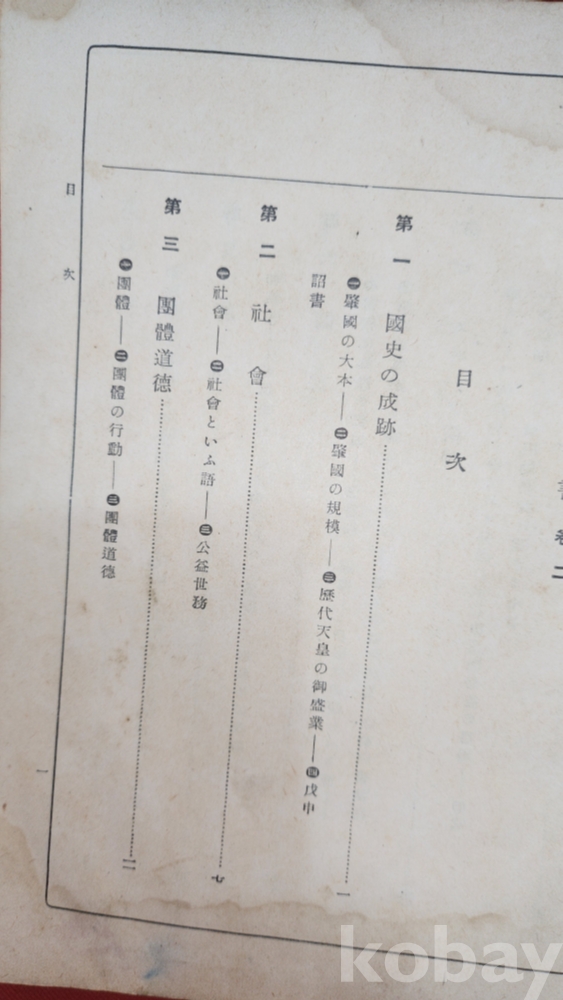 卷二
目次
第一 國史の成跡 一
㊀肇國の大本―㊁肇國の規模―㊂歷代天皇の御盛業―㊃戊申
詔書
第二 社會 七
㊀社會―㊁社會といふ語―㊂公益世務
第三 團體道德
㊀團體―㊁團體の行動―㊂團體道德
目次
一
kobay